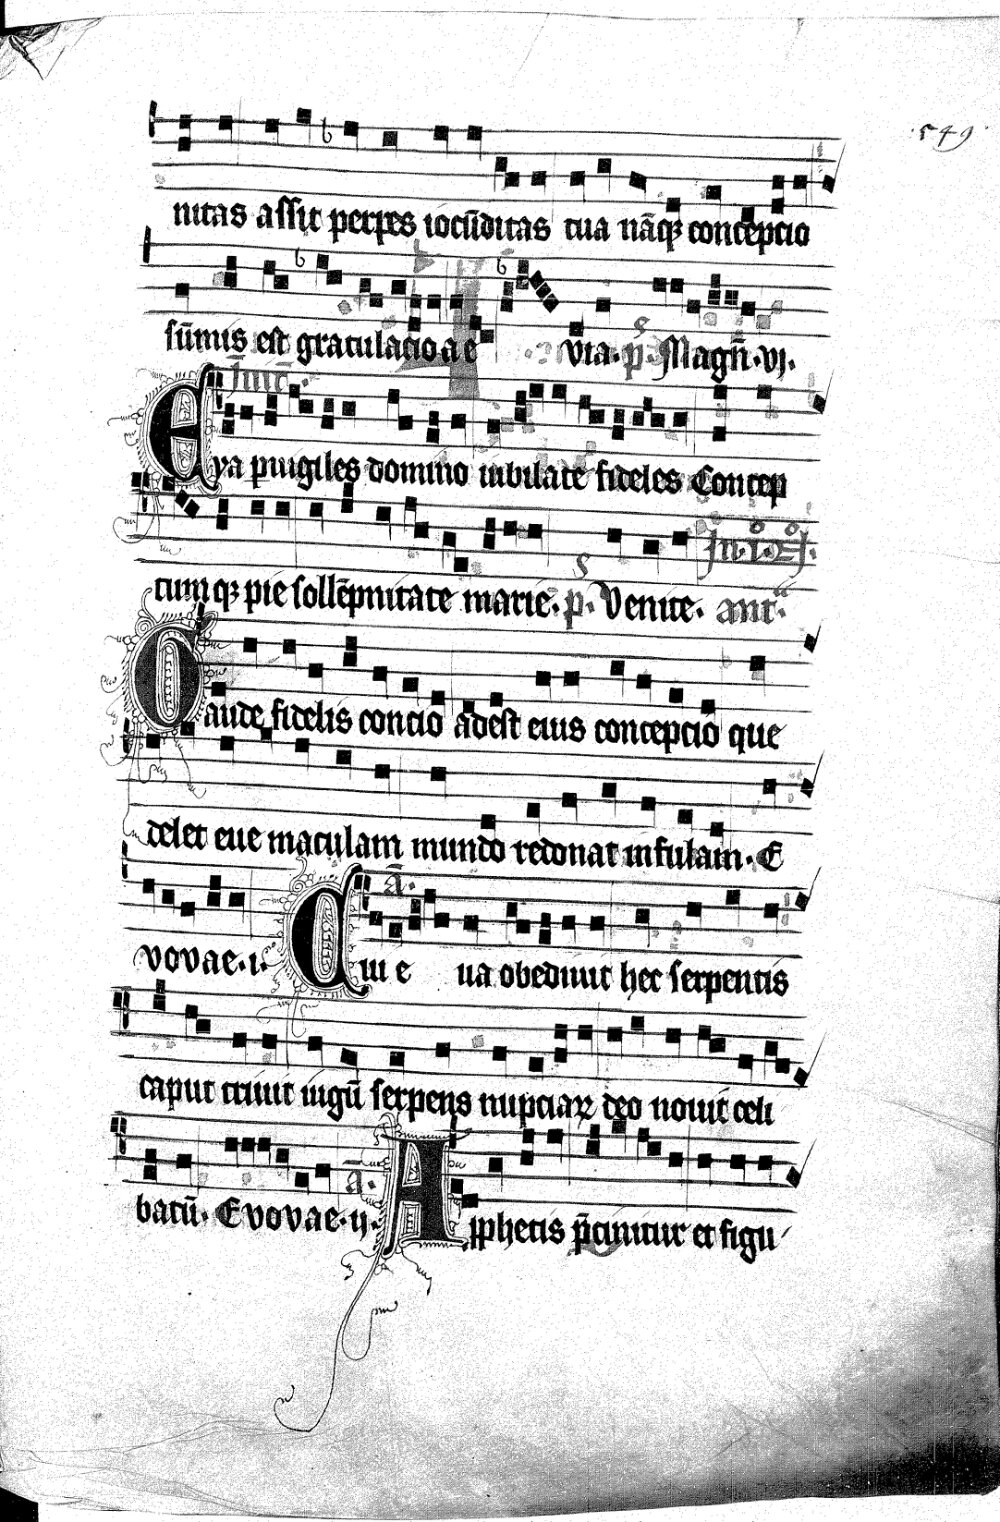 ·549·
nitas assit perpes iocūditas tua nāqꝫ conceptio
sūmis est gratulatio a e via. p̄. Magn̄. vj.
Inuit̄.
Eya puigiles domino iubilate fideles Concep
tumqꝫ pie sollēpnitate marie. p. Venite. ant̄
In. j. no.
Gaude fidelis concio adest eius conceptio que
delet eue maculam mundo redonat infulam. E
vovae. i. ā. Que eua obediuit hec serpentis
caput triuit iugū serpens nuptiaꝝ deo nouit celi
batū. Evovae. ij. a. A ꝓphetis p̄cinitur et figu